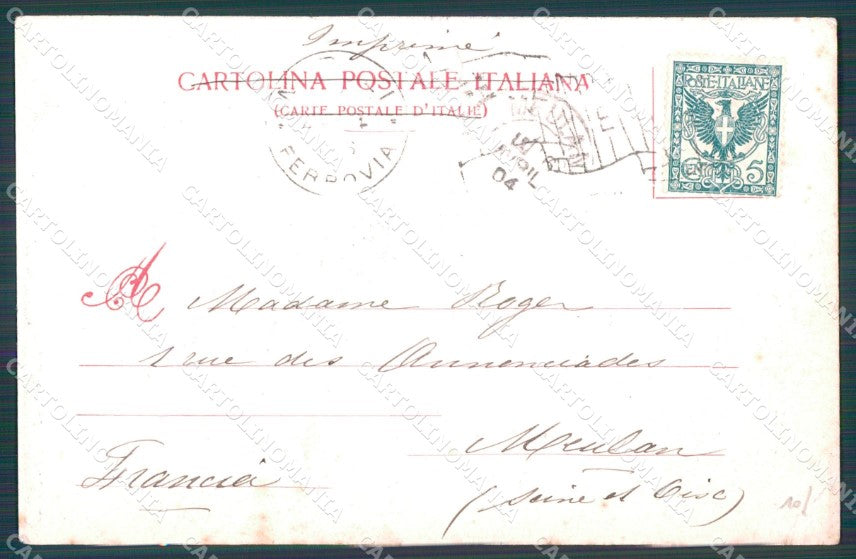 Imprimé
CARTOLINA POSTALE ITALIANA
(CARTE POSTALE D'ITALIE)
POSTE·ITALIANE
CENT 5
FERROVIA
04
A Madame Roger
1 rue des Annonciades
Meulan
Francia
(Seine et Oise)
10/
CARTOLINOMANIA